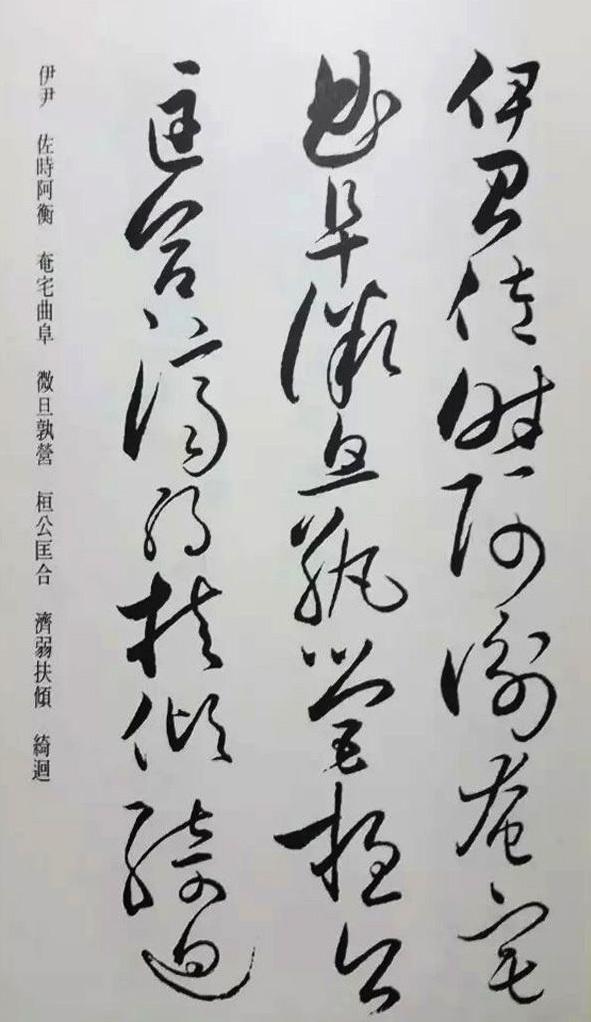 伊尹佐時阿衡奄宅
曲阜微旦孰營桓公
匡合濟弱扶傾綺迴
伊尹 佐時阿衡 奄宅曲阜 微旦孰營 桓公匡合 濟弱扶傾 綺迴